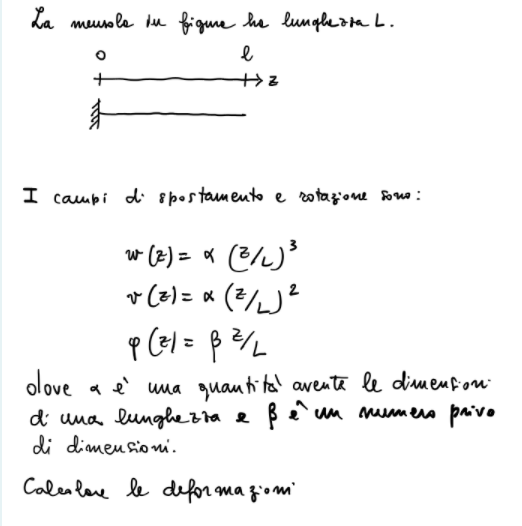 La mensola in figura ha lunghezza L.
0 l
z
I campi di spostamento e rotazione sono:
w(z) = α (z/L)³
v(z) = α (z/L)²
φ(z) = β z/L
dove α è una quantità avente le dimensioni
di una lunghezza e β è un numero privo
di dimensioni.
Calcolare le deformazioni